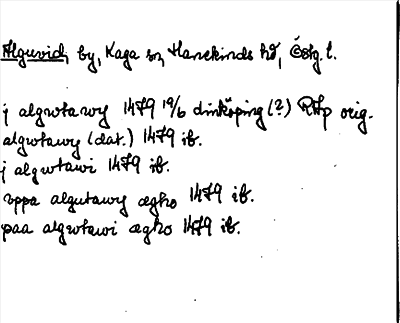 Alguvid, by, Kaga sn, Hanekinds hd, Östg. l.
j algwtawy 1479 19/6 Linköping (?) RAp orig.
algwtawy (dat.) 1479 ib.
j algwtawi 1479 ib.
vppa algutawy ægho 1479 ib.
paa algwtawi ægho 1479 ib.